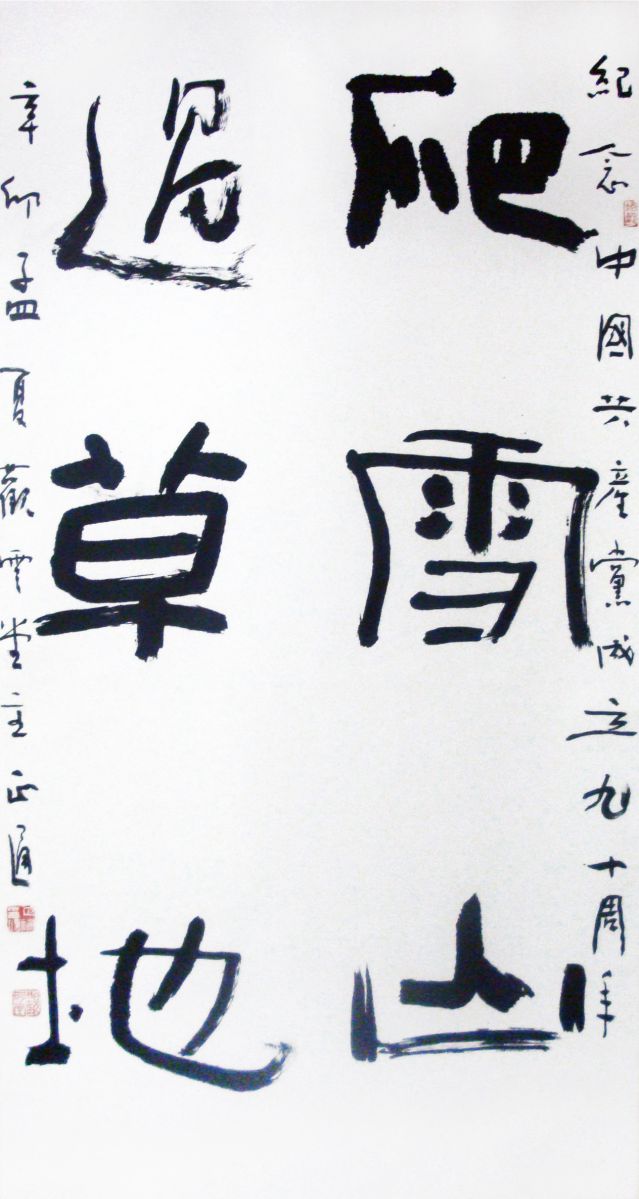 紀念中國共産黨成立九十周年
爬雪山
過草地
辛卯孟夏觀雲堂主正